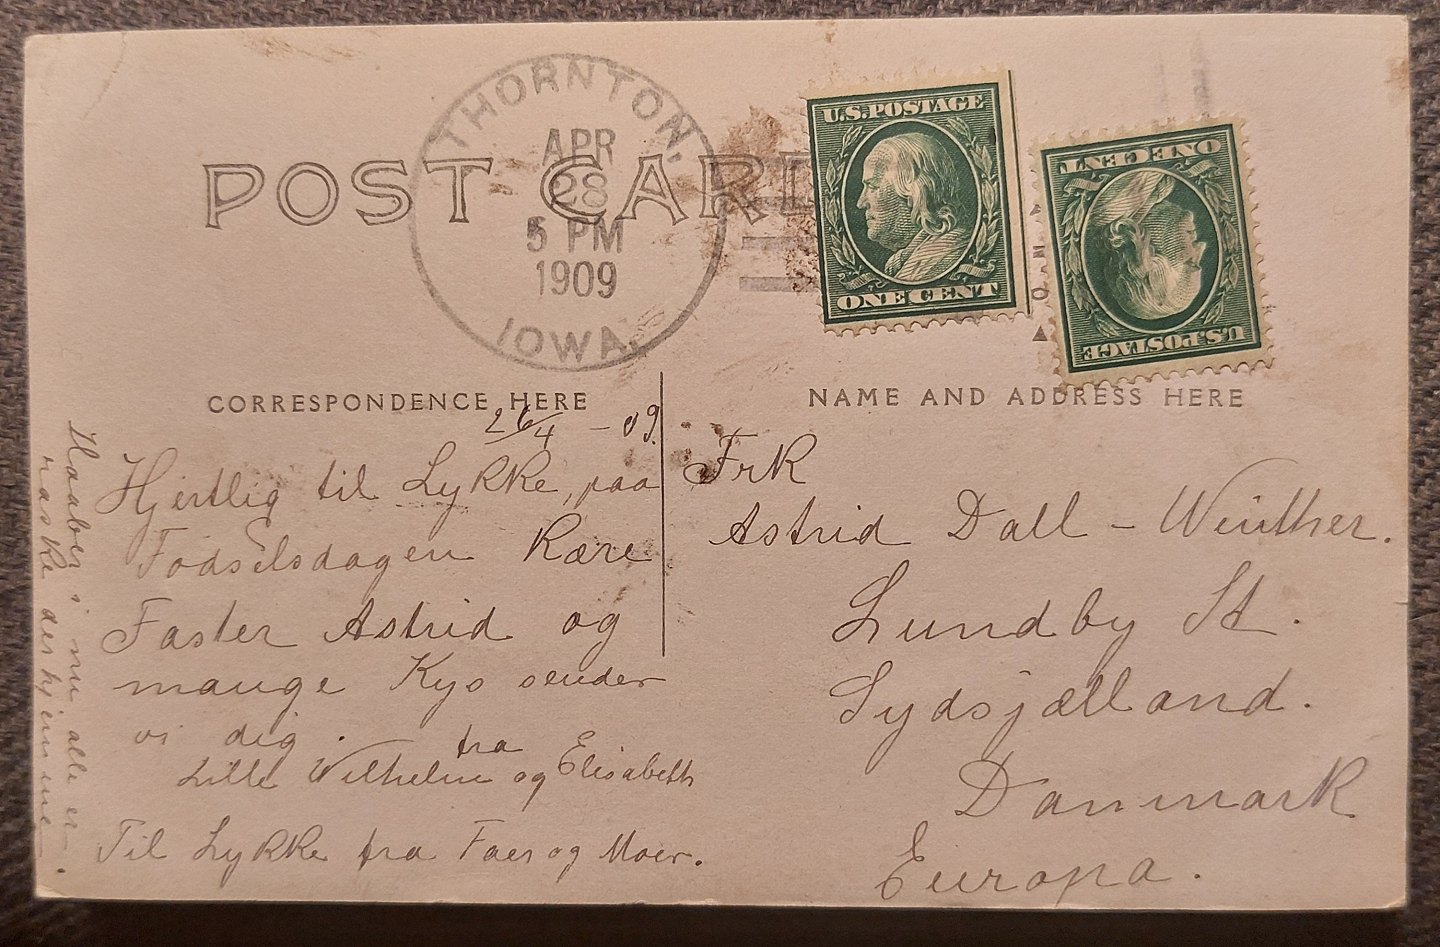 POST CARD
THORNTON,
APR
28
5 PM
1909
IOWA.
U.S. POSTAGE
ONE CENT
U.S. POSTAGE
ONE CENT
CORRESPONDENCE HERE
26/4 - 09.
Hjertlig til Lykke, paa
Fødselsdagen Kære
Faster Astrid og
mange Kys sender
vi dig. fra
Lille Wilhelm og Elisabeth
Til Lykke fra Faer og Moer.
Haaber i nu alle er
raske der hjemme.
NAME AND ADDRESS HERE
Frk
Astrid Dall - Winther.
Lundby St.
Sydsjælland.
Danmark
Europa.